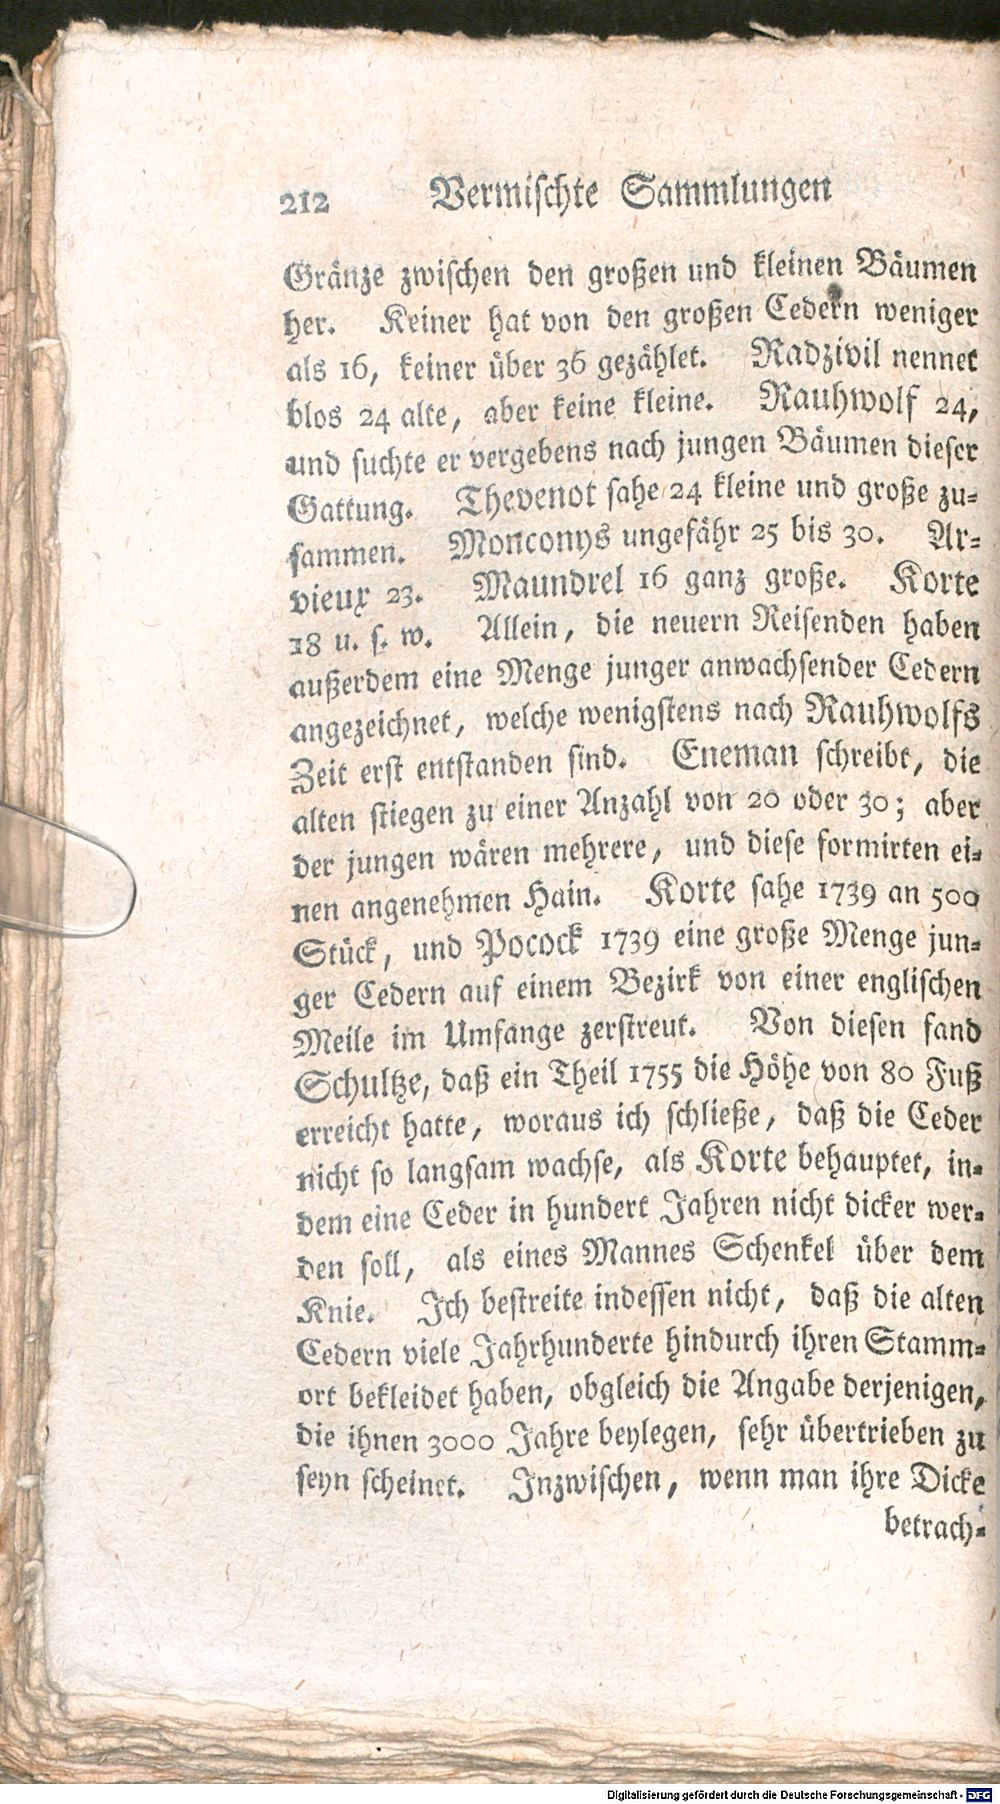 212 Vermischte Sammlungen
Gränze zwischen den großen und kleinen Bäumen
her. Keiner hat von den großen Cedern weniger
als 16, keiner über 36 gezählet. Radzivil nennet
blos 24 alte, aber keine kleine. Rauhwolf 24,
und suchte er vergebens nach jungen Bäumen dieser
Gattung. Thevenot sahe 24 kleine und große zu-
sammen. Monconys ungefähr 25 bis 30. Ar-
vieux 23. Maundrel 16 ganz große. Korte
18 u. s. w. Allein, die neuern Reisenden haben
außerdem eine Menge junger anwachsender Cedern
angezeichnet, welche wenigstens nach Rauhwolfs
Zeit erst entstanden sind. Eneman schreibt, die
alten stiegen zu einer Anzahl von 20 oder 30; aber
der jungen wären mehrere, und diese formirten ei-
nen angenehmen Hain. Korte sahe 1739 an 500
Stück, und Pocock 1739 eine große Menge jun-
ger Cedern auf einem Bezirk von einer englischen
Meile im Umfange zerstreut. Von diesen fand
Schultze, daß ein Theil 1755 die Höhe von 80 Fuß
erreicht hatte, woraus ich schließe, daß die Ceder
nicht so langsam wachse, als Korte behauptet, in-
dem eine Ceder in hundert Jahren nicht dicker wer-
den soll, als eines Mannes Schenkel über dem
Knie. Ich bestreite indessen nicht, daß die alten
Cedern viele Jahrhunderte hindurch ihren Stamm-
ort bekleidet haben, obgleich die Angabe derjenigen,
die ihnen 3000 Jahre beylegen, sehr übertrieben zu
seyn scheinet. Inzwischen, wenn man ihre Dicke
betrach-
Digitalisierung gefördert durch die Deutsche Forschungsgemeinschaft - DFG